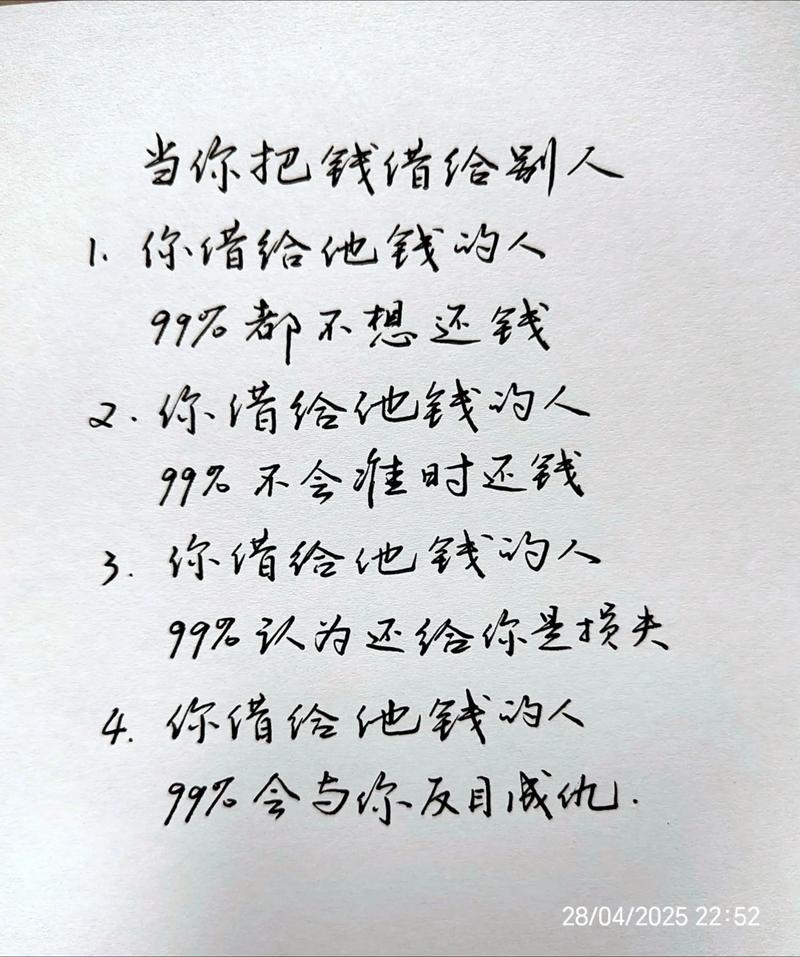 当你把钱借给别人
1. 你借给他钱的人
99%都不想还钱
2. 你借给他钱的人
99%不会准时还钱
3. 你借给他钱的人
99%认为还给你是损失
4. 你借给他钱的人
99%会与你反目成仇.
28/04/2025 22:52